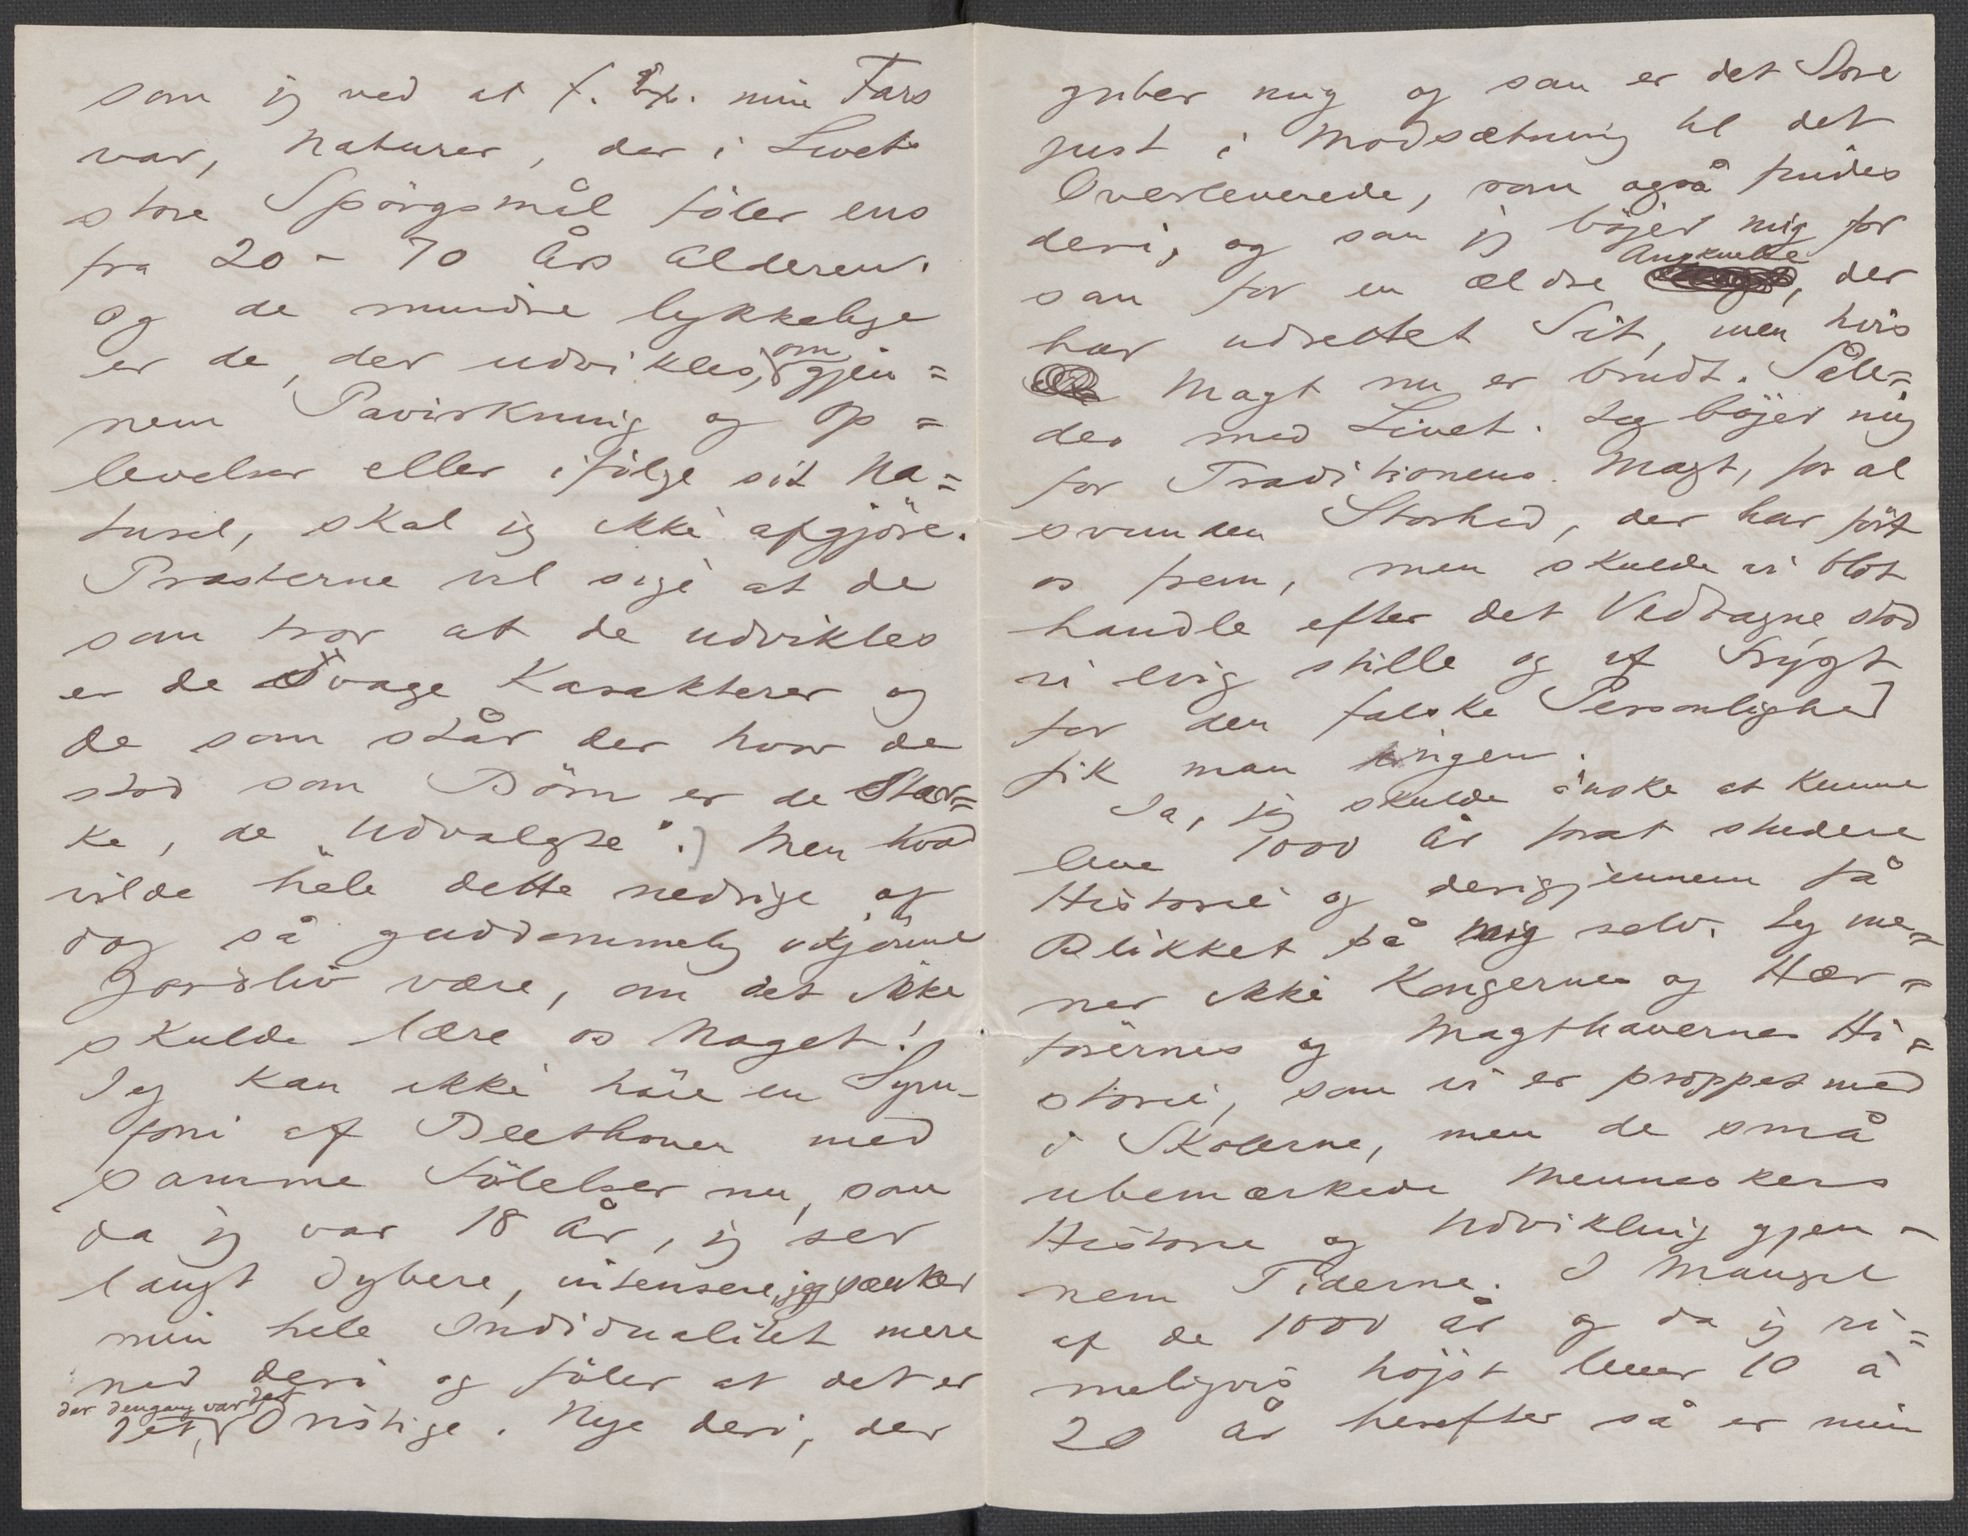 som jeg ved at f. Ex. min Fars
var, Naturer, der i Livets
store Spörgsmål föler ens
fra 20 - 70 Års Alderen.
Og de mindre lykkelige
er de, der udvikles, om gjen=
nem Pavirkning og Op=
levelser eller ifölge sit Na=
turel, skal jeg ikke afgjöre.
Præsterne vil sige at de
som tror at de udvikles
er de Svage Karakterer og
de som står der hvor de
stod som Börn er de Stær=
ke, de "Udvalgte".) Men hvad
vilde hele dette nedrige og
dog så guddommelig skjönne
Jordsliv være, om det ikke
skulde lære os Noget!
Jeg kan ikke höre en Sym-
foni af Beethoven med
samme Fölelser nu, som
da jeg var 18 År, jeg ser
langt dybere, intensere, jeg sænker
min hele Individualitet mere
ned deri og föler at det er
der dengang var det
det, Oristige. Nye deri, der
griber mig og som er det Store
just i Modsætning til det
Overleverede, som også findes
deri, og som jeg böjer mig for
som for en ældre Ankuelse, der
har udrettet Sit, men hvis
Magt nu er brudt. Såle=
des med Livet. Jeg böjer mig
for Traditionens Magt, for al
svunden Storhed, der har fört
os frem, men skulde vi blot
handle efter det Vedtagne, stod
vi evig stille og af Frygt
for den falske Personlighed
fik man ingen.
Ja, jeg skulde önske at kunne
leve 1000 År forat studere
Historie og derigjennem få
Blikket på mig selv. Jeg me=
ner ikke Kongernes og Hær=
förernes og Magthavernes Hi=
storie, som vi er proppet med
i Skolerne, men de små
ubemærkede Menneskers
Historie og Udvikling gjen-
nem Tiderne. I Mangel
af de 1000 År og da jeg ri=
meligvis höjst lever 10 a
20 År herefter så er min